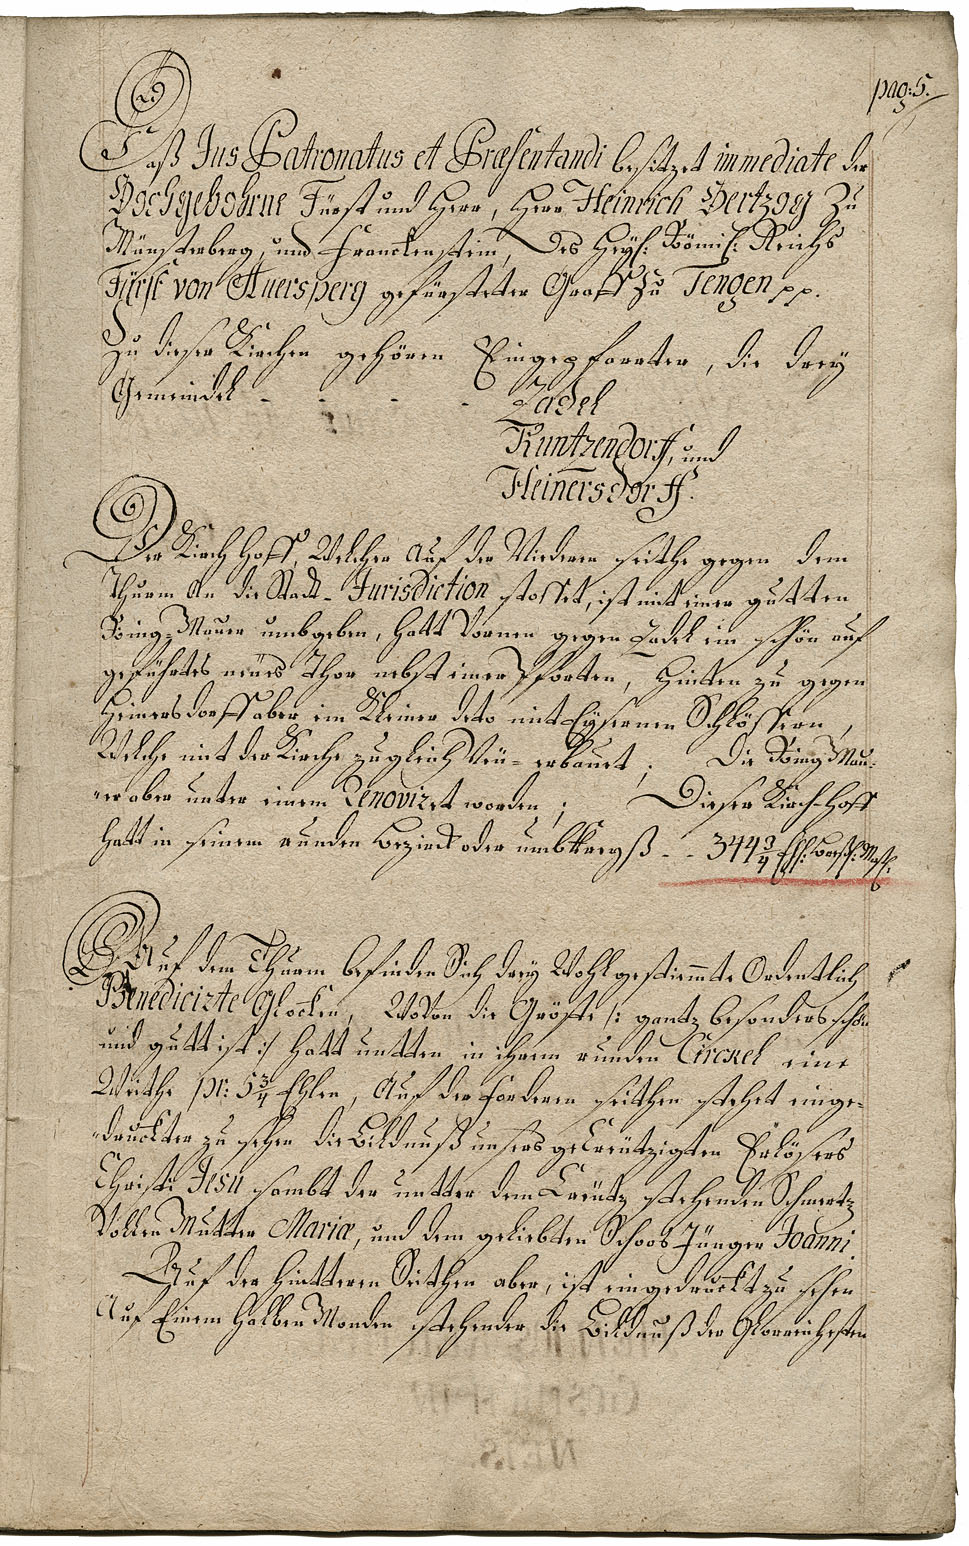 pag: 5.
Daß Jus Patronatus et Præsentandi besitzet immediate der
Hochgebohrne Fürst und Herr, Herr Heinrich Hertzog Zu
Münsterberg, und Franckenstein, des Heyl: Römis: Reichs
Fürst von Auersperg gefürsteter Graff Zu Tengen pp.
Zu dieser Kirchen gehören Eingepfarrter, die drey
Gemeindel - - - - Zadel
Kuntzendorff, und
Heinersdorff.
Der Kirch Hoff, Welcher auf der Niederen seithe gegen dem
Thurm An die Stadt-Jurisdiction stosset, ist mit einer gutten
Ring-Mauer umbgeben, hatt Vornen gegen Zadel ein schön auf
geführtes neües Thor nebst einer Pforten, hinten zu gegen
Heinersdorff aber ein Kleiner deto mit Eysernen Schlössern,
Welche mit der Kirche zugleich Neü-erbauet; Die Ring Mau-
-er aber unter einem Renoviret worden; Dieser Kirch-Hoff
hatt in seinem runden Bezirck oder umbkreyß - - 344 3/4 Ehl: Bressl: Maß:
Auf dem Thurm befinden Sich drey Wohlgestimte Ordentlich
Benedicirte Glocken, WoVon die Gröste /: gantz besonders schön
und gutt ist :/ hatt untten in ihrem runden Circkel eine
Weithe pr: 5 3/4 Ehlen, Auf der forderen seithen stehet einge-
-druckter zu sehen die Bildnuß unsers geCreützigten Erlösers
Christi Jesu sambt der untter dem Creütz stehenden Schmertz
Vollen Mutter Mariæ, und dem geliebten Schoos Jünger Joanni.
Auf der Hintteren Seithen aber, ist eingedruckt zu sehen
Auf Einem halben Monden stehender die Bildnuß der Glorreichesten